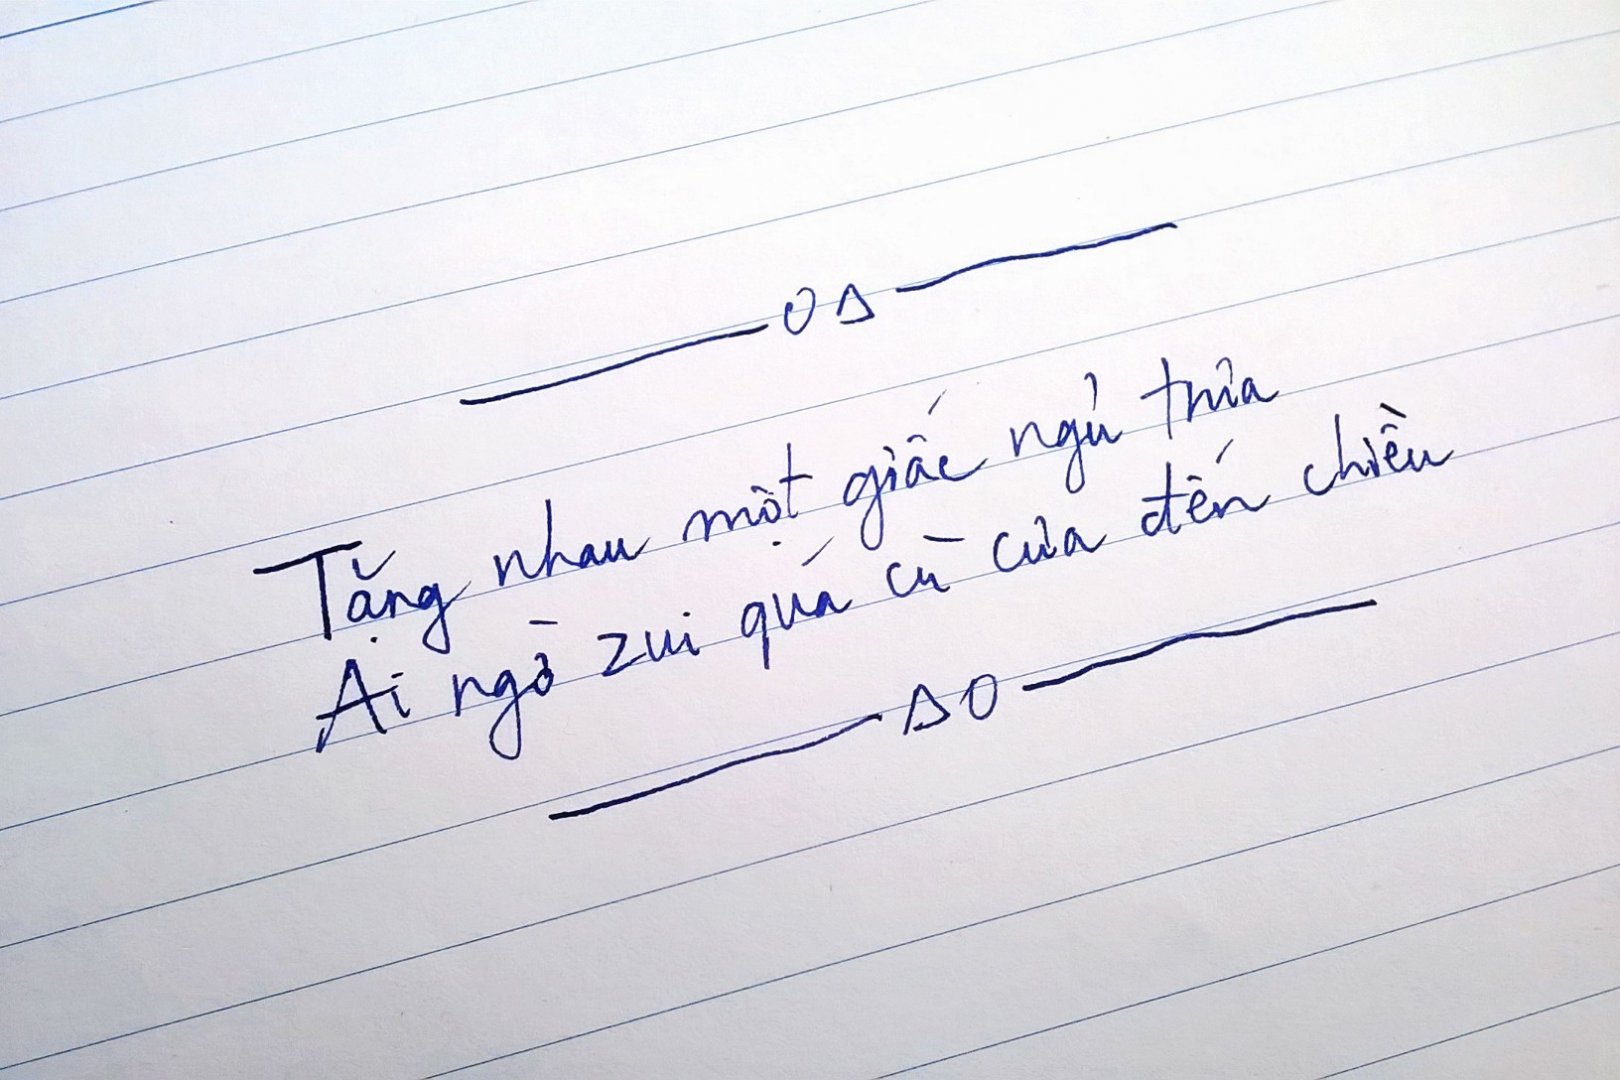 Tặng nhau một giấc ngủ trưa
Ai ngờ zui quá cù cưa đến chiều